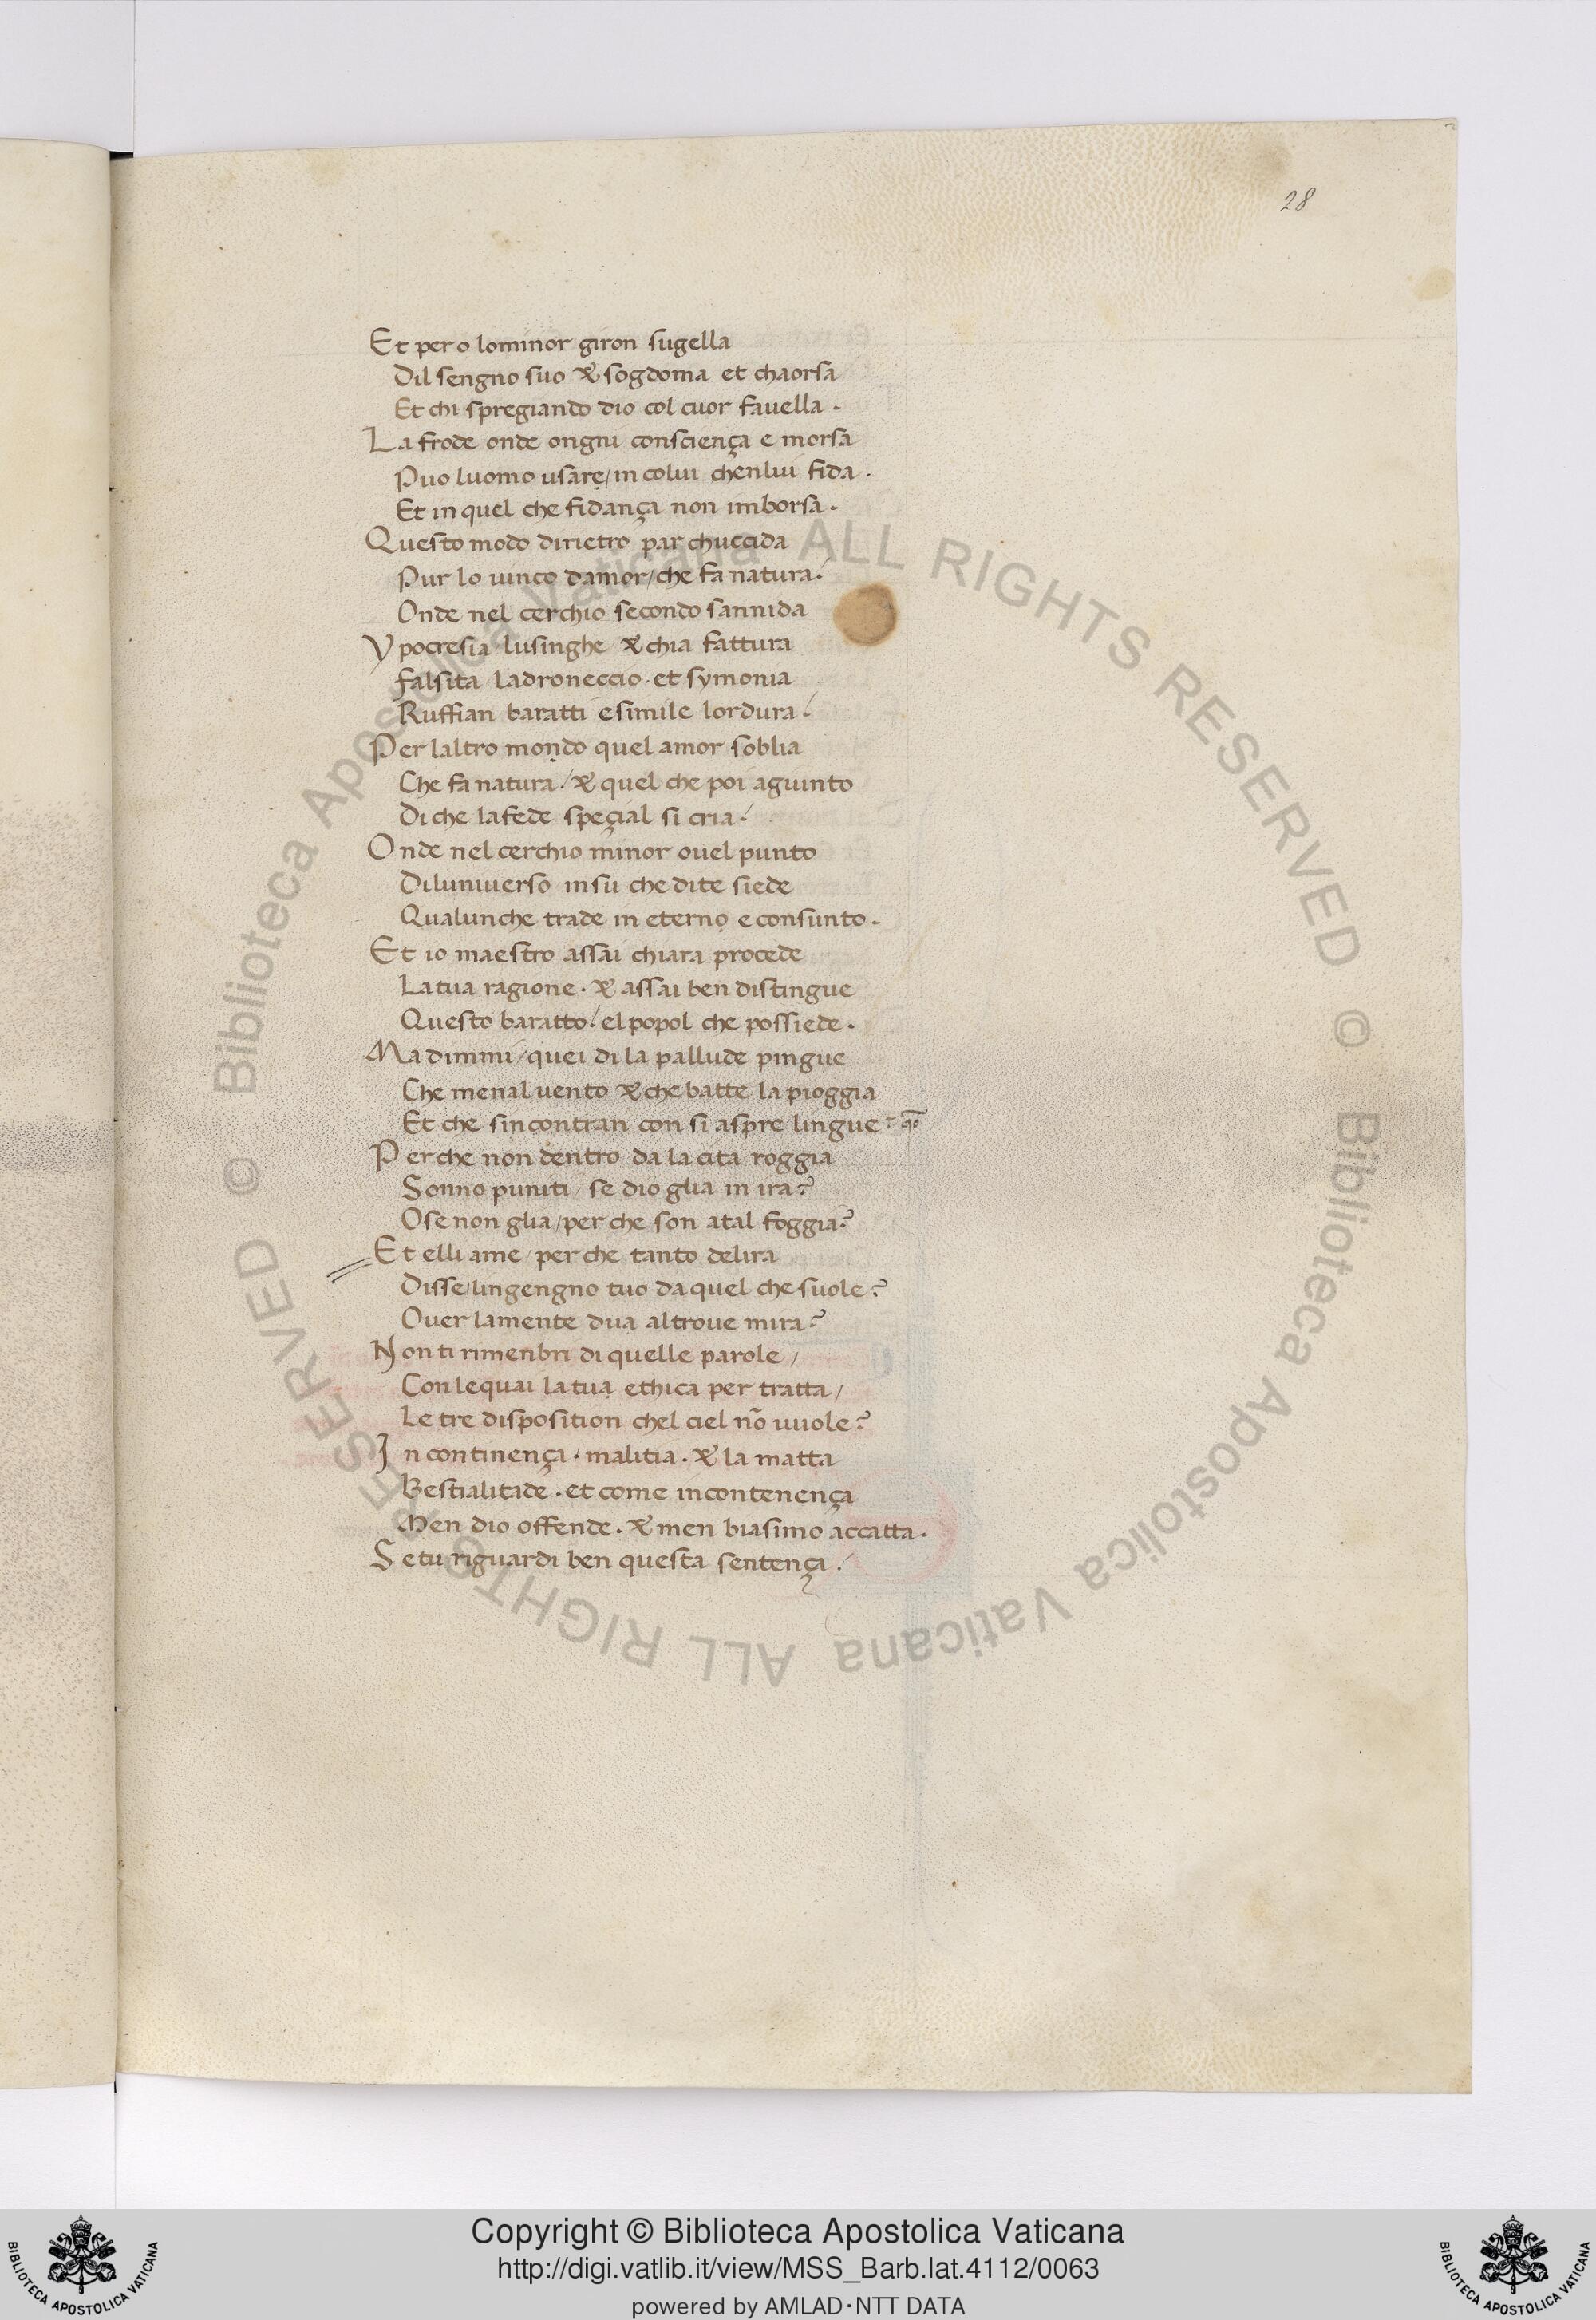 28
Et pero lominor giron sugella
Dil sengno suo & sogdoma et chaorsa
Et chi spregiando dio col cuor fauella .
La frode onde ongni consciença e morsa
Puo luomo usare / in colui chenlui fida .
Et in quel che fidança non imborsa .
Questo modo dirietro par chuccida
Pur lo uinco damor / che fa natura ./
Onde nel cerchio secondo sannida
Ypocresia lusinghe & chia fattura
falsita ladroneccio . et symonia
Ruffian baratti e simile lordura ./
Per laltro mondo quel amor soblia
Che fa natura ./ & quel che poi aguinto
Di che la fede speçial si cria ./
Onde nel cerchio minor ouel punto
Diluniuerso insu che dite siede
Qualunche trade in eterno e consunto .
Et io maestro assai chiara procede
La tua ragione . & assai ben distingue
Questo baratto ./ el popol che possiede .
Ma dimmi / quei di la pallude pingue
Che menal uento & che batte la pioggia
Et che sincontran con si aspre lingue : qo
Perche non dentro da la cita roggia
Sonno puniti / se dio glia in ira ?
O se non glia / per che son atal foggia ?
Et elli ame / per che tanto delira
Disse / lingengno tuo da quel che suole ?
Ouer lamente dua altroue mira ?
Non ti rimenbri di quelle parole /
Con lequai la tua ethica per tratta /
Le tre disposition chel ciel nõ uuole ?
In continença . malitia . & la matta
Bestialitade . et come incontenença
Men dio offende . & men biasimo accatta .
Se tu riguardi ben questa sentença ./
© Biblioteca Apostolica Vaticana ALL RIGHTS RESERVED © Biblioteca Apostolica Vaticana ALL RIGHTS RESERVED
BIBLIOTECA APOSTOLICA VATICANA
Copyright © Biblioteca Apostolica Vaticana
http://digi.vatlib.it/view/MSS_Barb.lat.4112/0063
powered by AMLAD·NTT DATA
BIBLIOTECA APOSTOLICA VATICANA